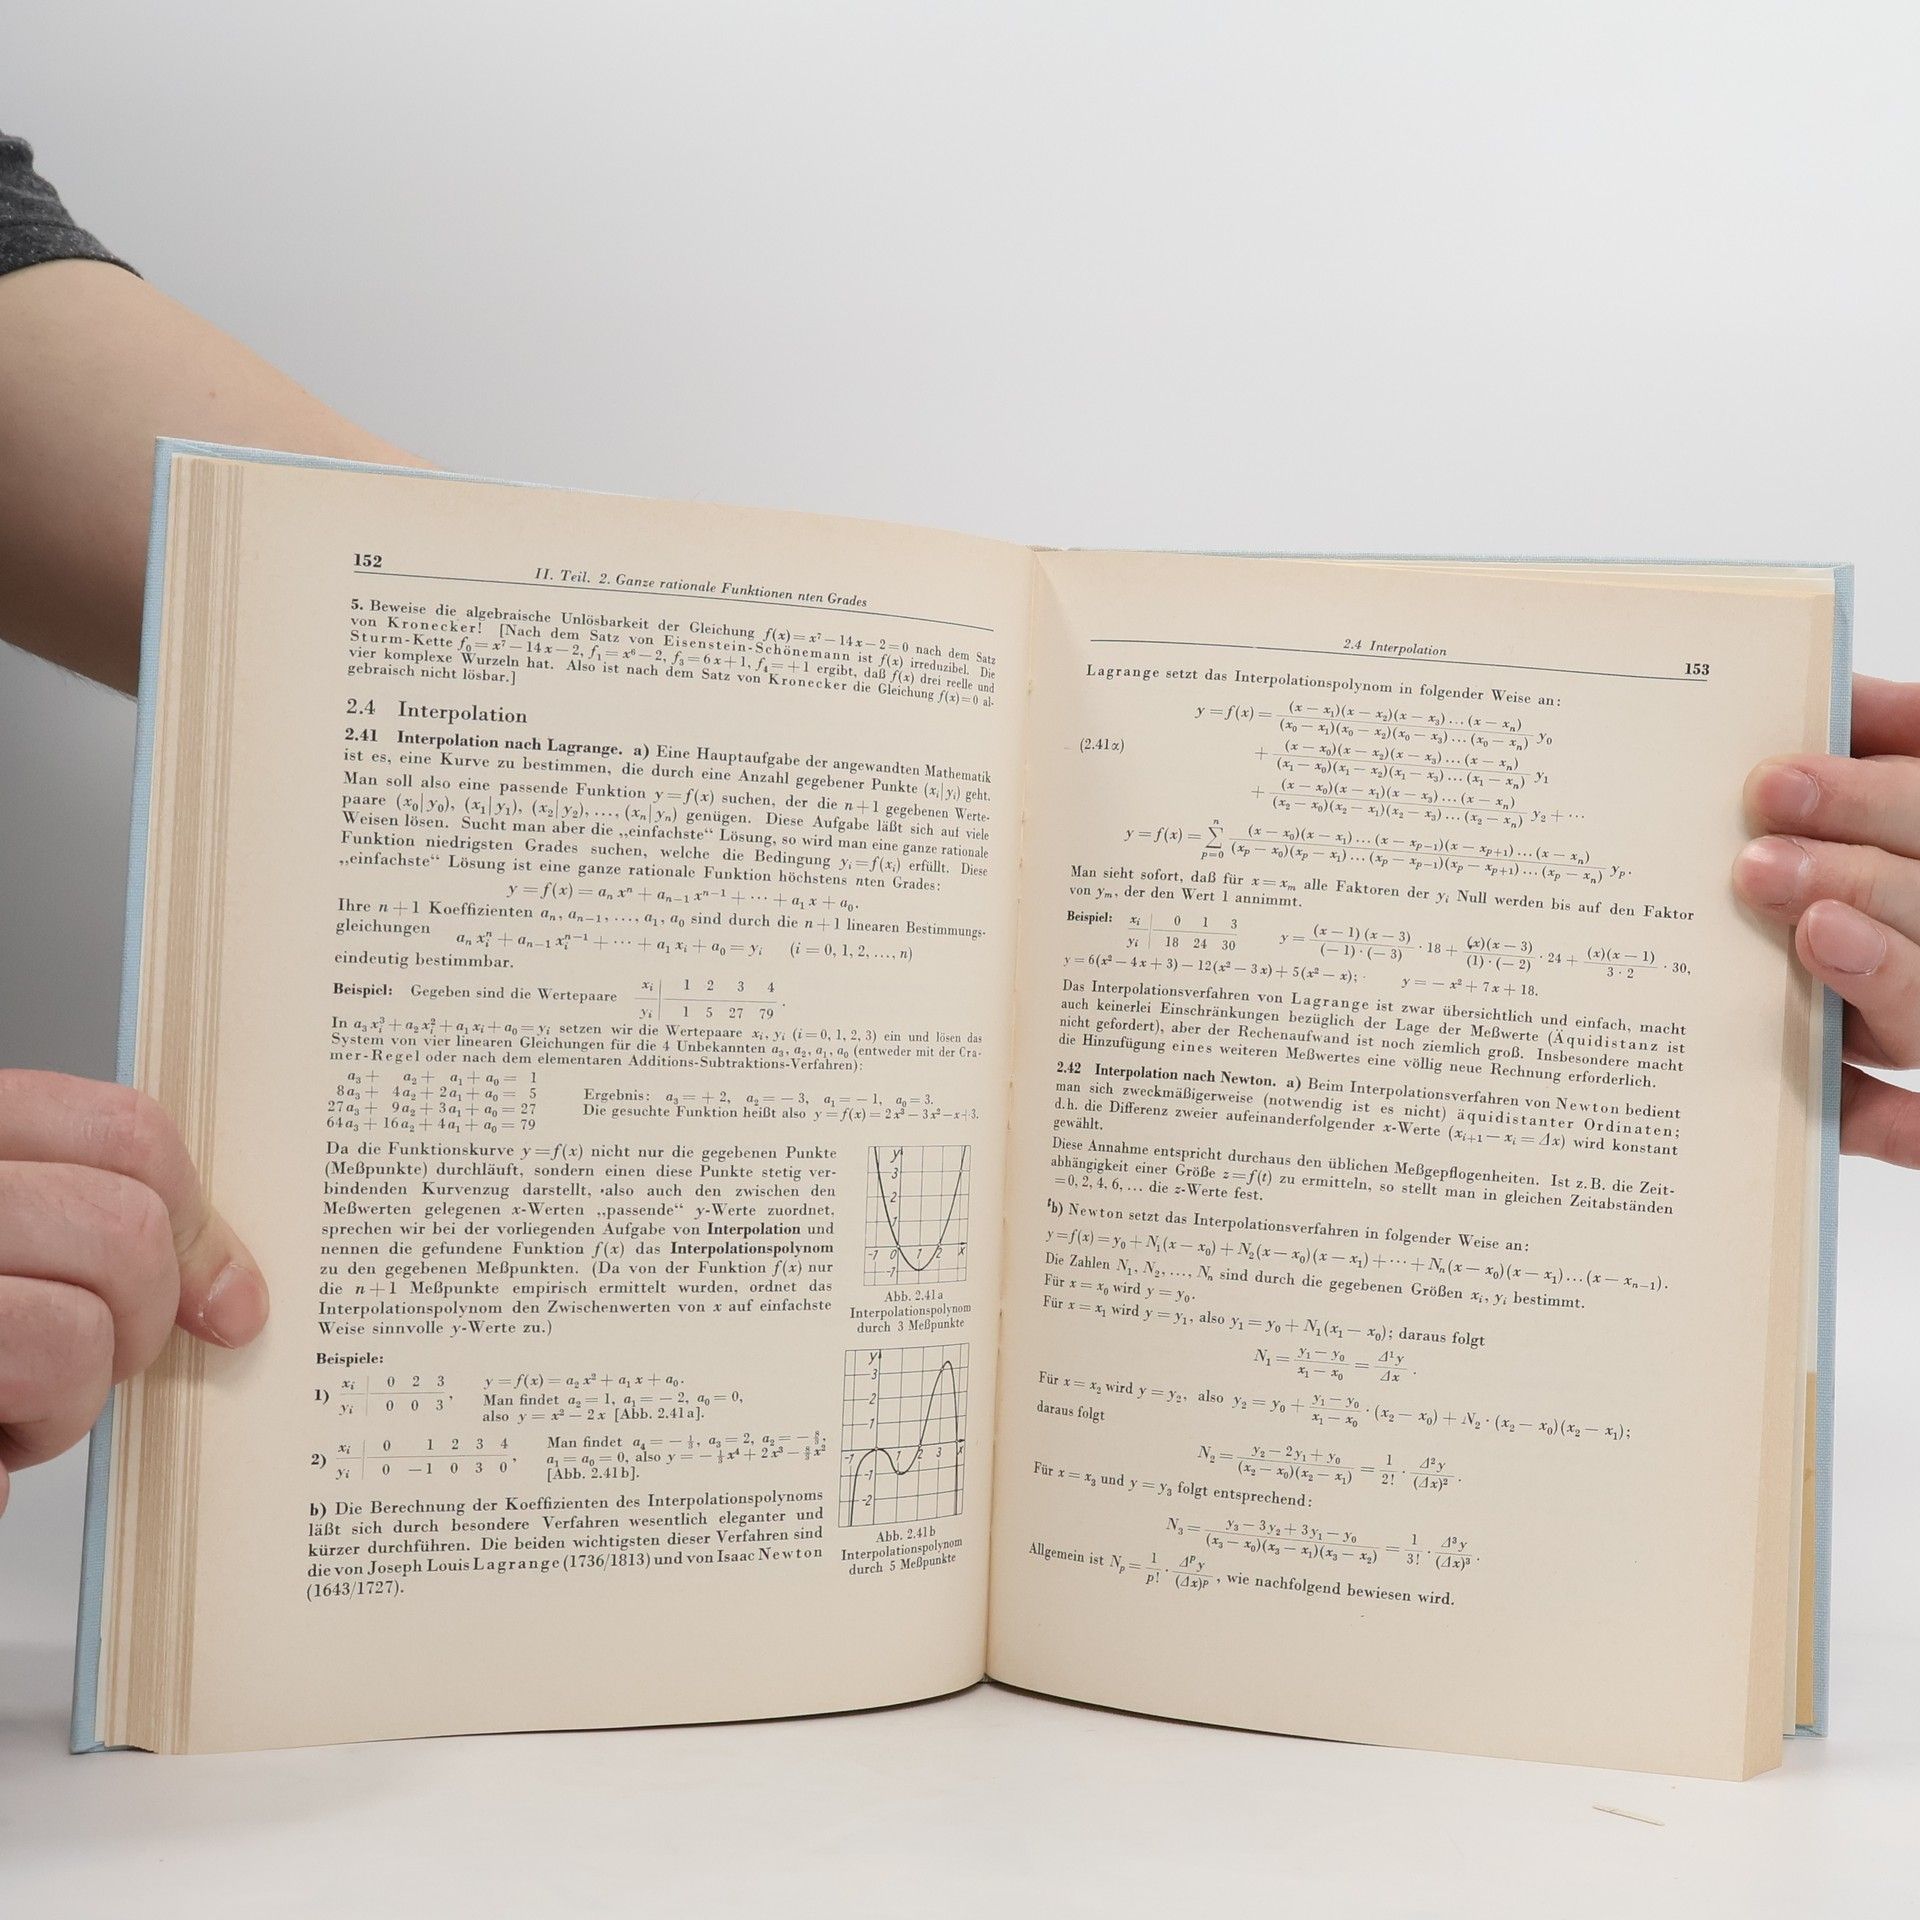 152
II. Teil. 2. Ganze rationale Funktionen nten Grades
5. Beweise die algebraische Unlösbarkeit der Gleichung f(x) = x⁷ − 14x − 2 = 0 nach dem Satz
von Kronecker! [Nach dem Satz von Eisenstein-Schönemann ist f(x) irreduzibel. Die
Sturm-Kette f₀ = x⁷ − 14x − 2, f₁ = x⁶ − 2, f₃ = 6x + 1, f₄ = +1 ergibt, daß f(x) drei reelle und
vier komplexe Wurzeln hat. Also ist nach dem Satz von Kronecker die Gleichung f(x) = 0 al-
gebraisch nicht lösbar.]
2.4 Interpolation
2.41 Interpolation nach Lagrange. a) Eine Hauptaufgabe der angewandten Mathematik
ist es, eine Kurve zu bestimmen, die durch eine Anzahl gegebener Punkte (xᵢ|yᵢ) geht.
Man soll also eine passende Funktion y = f(x) suchen, der die n + 1 gegebenen Werte-
paare (x₀|y₀), (x₁|y₁), (x₂|y₂), ..., (xₙ|yₙ) genügen. Diese Aufgabe läßt sich auf viele
Weisen lösen. Sucht man aber die „einfachste“ Lösung, so wird man eine ganze rationale
Funktion niedrigsten Grades suchen, welche die Bedingung yᵢ = f(xᵢ) erfüllt. Diese
„einfachste“ Lösung ist eine ganze rationale Funktion höchstens nten Grades:
y = f(x) = aₙxⁿ + aₙ₋₁xⁿ⁻¹ + ··· + a₁x + a₀.
Ihre n + 1 Koeffizienten aₙ, aₙ₋₁, ..., a₁, a₀ sind durch die n + 1 linearen Bestimmungs-
gleichungen
aₙxᵢⁿ + aₙ₋₁xᵢⁿ⁻¹ + ··· + a₁xᵢ + a₀ = yᵢ (i = 0, 1, 2, ..., n)
eindeutig bestimmbar.
Beispiel: Gegeben sind die Wertepaare
xᵢ | 1 2 3 4
yᵢ | 1 5 27 79 .
In a₃xᵢ³ + a₂xᵢ² + a₁xᵢ + a₀ = yᵢ setzen wir die Wertepaare xᵢ, yᵢ (i = 0, 1, 2, 3) ein und lösen das
System von vier linearen Gleichungen für die 4 Unbekannten a₃, a₂, a₁, a₀ (entweder mit der Cra-
mer-Regel oder nach dem elementaren Additions-Subtraktions-Verfahren):
a₃ + a₂ + a₁ + a₀ = 1
8a₃ + 4a₂ + 2a₁ + a₀ = 5
27a₃ + 9a₂ + 3a₁ + a₀ = 27
64a₃ + 16a₂ + 4a₁ + a₀ = 79
Ergebnis: a₃ = +2, a₂ = −3, a₁ = −1, a₀ = 3.
Die gesuchte Funktion heißt also y = f(x) = 2x³ − 3x² − x + 3.
Da die Funktionskurve y = f(x) nicht nur die gegebenen Punkte
(Meßpunkte) durchläuft, sondern einen diese Punkte stetig ver-
bindenden Kurvenzug darstellt, also auch den zwischen den
Meßwerten gelegenen x-Werten „passende“ y-Werte zuordnet,
sprechen wir bei der vorliegenden Aufgabe von Interpolation und
nennen die gefundene Funktion f(x) das Interpolationspolynom
zu den gegebenen Meßpunkten. (Da von der Funktion f(x) nur
die n + 1 Meßpunkte empirisch ermittelt wurden, ordnet das
Interpolationspolynom den Zwischenwerten von x auf einfachste
Weise sinnvolle y-Werte zu.)
y
3
2
1
-1 0 1 2 x
-1
Abb. 2.41a
Interpolationspolynom
durch 3 Meßpunkte
Beispiele:
1)
xᵢ | 0 2 3
yᵢ | 0 0 3 ,
y = f(x) = a₂x² + a₁x + a₀.
Man findet a₂ = 1, a₁ = −2, a₀ = 0,
also y = x² − 2x [Abb. 2.41a].
2)
xᵢ | 0 1 2 3 4
yᵢ | 0 −1 0 3 0 ,
Man findet a₄ = −⅓, a₃ = 2, a₂ = −8/3,
a₁ = a₀ = 0, also y = −⅓x⁴ + 2x³ − 8/3x²
[Abb. 2.41b].
y
3
2
1
-1 1 2 3 x
-1
-2
Abb. 2.41b
Interpolationspolynom
durch 5 Meßpunkte
b) Die Berechnung der Koeffizienten des Interpolationspolynoms
läßt sich durch besondere Verfahren wesentlich eleganter und
kürzer durchführen. Die beiden wichtigsten dieser Verfahren sind
die von Joseph Louis Lagrange (1736/1813) und von Isaac Newton
(1643/1727).
2.4 Interpolation
153
Lagrange setzt das Interpolationspolynom in folgender Weise an:
y = f(x) = (x − x₁)(x − x₂)(x − x₃)...(x − xₙ) / (x₀ − x₁)(x₀ − x₂)(x₀ − x₃)...(x₀ − xₙ) y₀
(2.41α) + (x − x₀)(x − x₂)(x − x₃)...(x − xₙ) / (x₁ − x₀)(x₁ − x₂)(x₁ − x₃)...(x₁ − xₙ) y₁
+ (x − x₀)(x − x₁)(x − x₃)...(x − xₙ) / (x₂ − x₀)(x₂ − x₁)(x₂ − x₃)...(x₂ − xₙ) y₂ + ···
y = f(x) = Σₚ₌₀ⁿ (x − x₀)(x − x₁)...(x − xₚ₋₁)(x − xₚ₊₁)...(x − xₙ) / (xₚ − x₀)(xₚ − x₁)...(xₚ − xₚ₋₁)(xₚ − xₚ₊₁)...(xₚ − xₙ) yₚ.
Man sieht sofort, daß für x = xₘ alle Faktoren der yᵢ Null werden bis auf den Faktor
von yₘ, der den Wert 1 annimmt.
Beispiel:
xᵢ | 0 1 3
yᵢ | 18 24 30
y = (x − 1)(x − 3) / (−1)·(−3) · 18 + (x)(x − 3) / (1)·(−2) · 24 + (x)(x − 1) / 3·2 · 30,
y = 6(x² − 4x + 3) − 12(x² − 3x) + 5(x² − x); y = −x² + 7x + 18.
Das Interpolationsverfahren von Lagrange ist zwar übersichtlich und einfach, macht
auch keinerlei Einschränkungen bezüglich der Lage der Meßwerte (Äquidistanz ist
nicht gefordert), aber der Rechenaufwand ist noch ziemlich groß. Insbesondere macht
die Hinzufügung eines weiteren Meßwertes eine völlig neue Rechnung erforderlich.
2.42 Interpolation nach Newton. a) Beim Interpolationsverfahren von Newton bedient
man sich zweckmäßigerweise (notwendig ist es nicht) äquidistanter Ordinaten;
d.h. die Differenz zweier aufeinanderfolgender x-Werte (xᵢ₊₁ − xᵢ = Δx) wird konstant
gewählt.
Diese Annahme entspricht durchaus den üblichen Meßgepflogenheiten. Ist z.B. die Zeit-
abhängigkeit einer Größe z = f(t) zu ermitteln, so stellt man in gleichen Zeitabständen
t = 0, 2, 4, 6, ... die z-Werte fest.
b) Newton setzt das Interpolationsverfahren in folgender Weise an:
y = f(x) = y₀ + N₁(x − x₀) + N₂(x − x₀)(x − x₁) + ··· + Nₙ(x − x₀)(x − x₁)...(x − xₙ₋₁).
Die Zahlen N₁, N₂, ..., Nₙ sind durch die gegebenen Größen xᵢ, yᵢ bestimmt.
Für x = x₀ wird y = y₀.
Für x = x₁ wird y = y₁, also y₁ = y₀ + N₁(x₁ − x₀); daraus folgt
N₁ = (y₁ − y₀) / (x₁ − x₀) = Δ¹y / Δx .
Für x = x₂ wird y = y₂, also y₂ = y₀ + (y₁ − y₀) / (x₁ − x₀) · (x₂ − x₀) + N₂ · (x₂ − x₀)(x₂ − x₁);
daraus folgt
N₂ = (y₂ − 2y₁ + y₀) / (x₂ − x₀)(x₂ − x₁) = 1/2! · Δ²y / (Δx)² .
Für x = x₃ und y = y₃ folgt entsprechend:
N₃ = (y₃ − 3y₂ + 3y₁ − y₀) / (x₃ − x₀)(x₃ − x₁)(x₃ − x₂) = 1/3! · Δ³y / (Δx)³ .
Allgemein ist Nₚ = 1/p! · Δᵖy / (Δx)ᵖ , wie nachfolgend bewiesen wird.